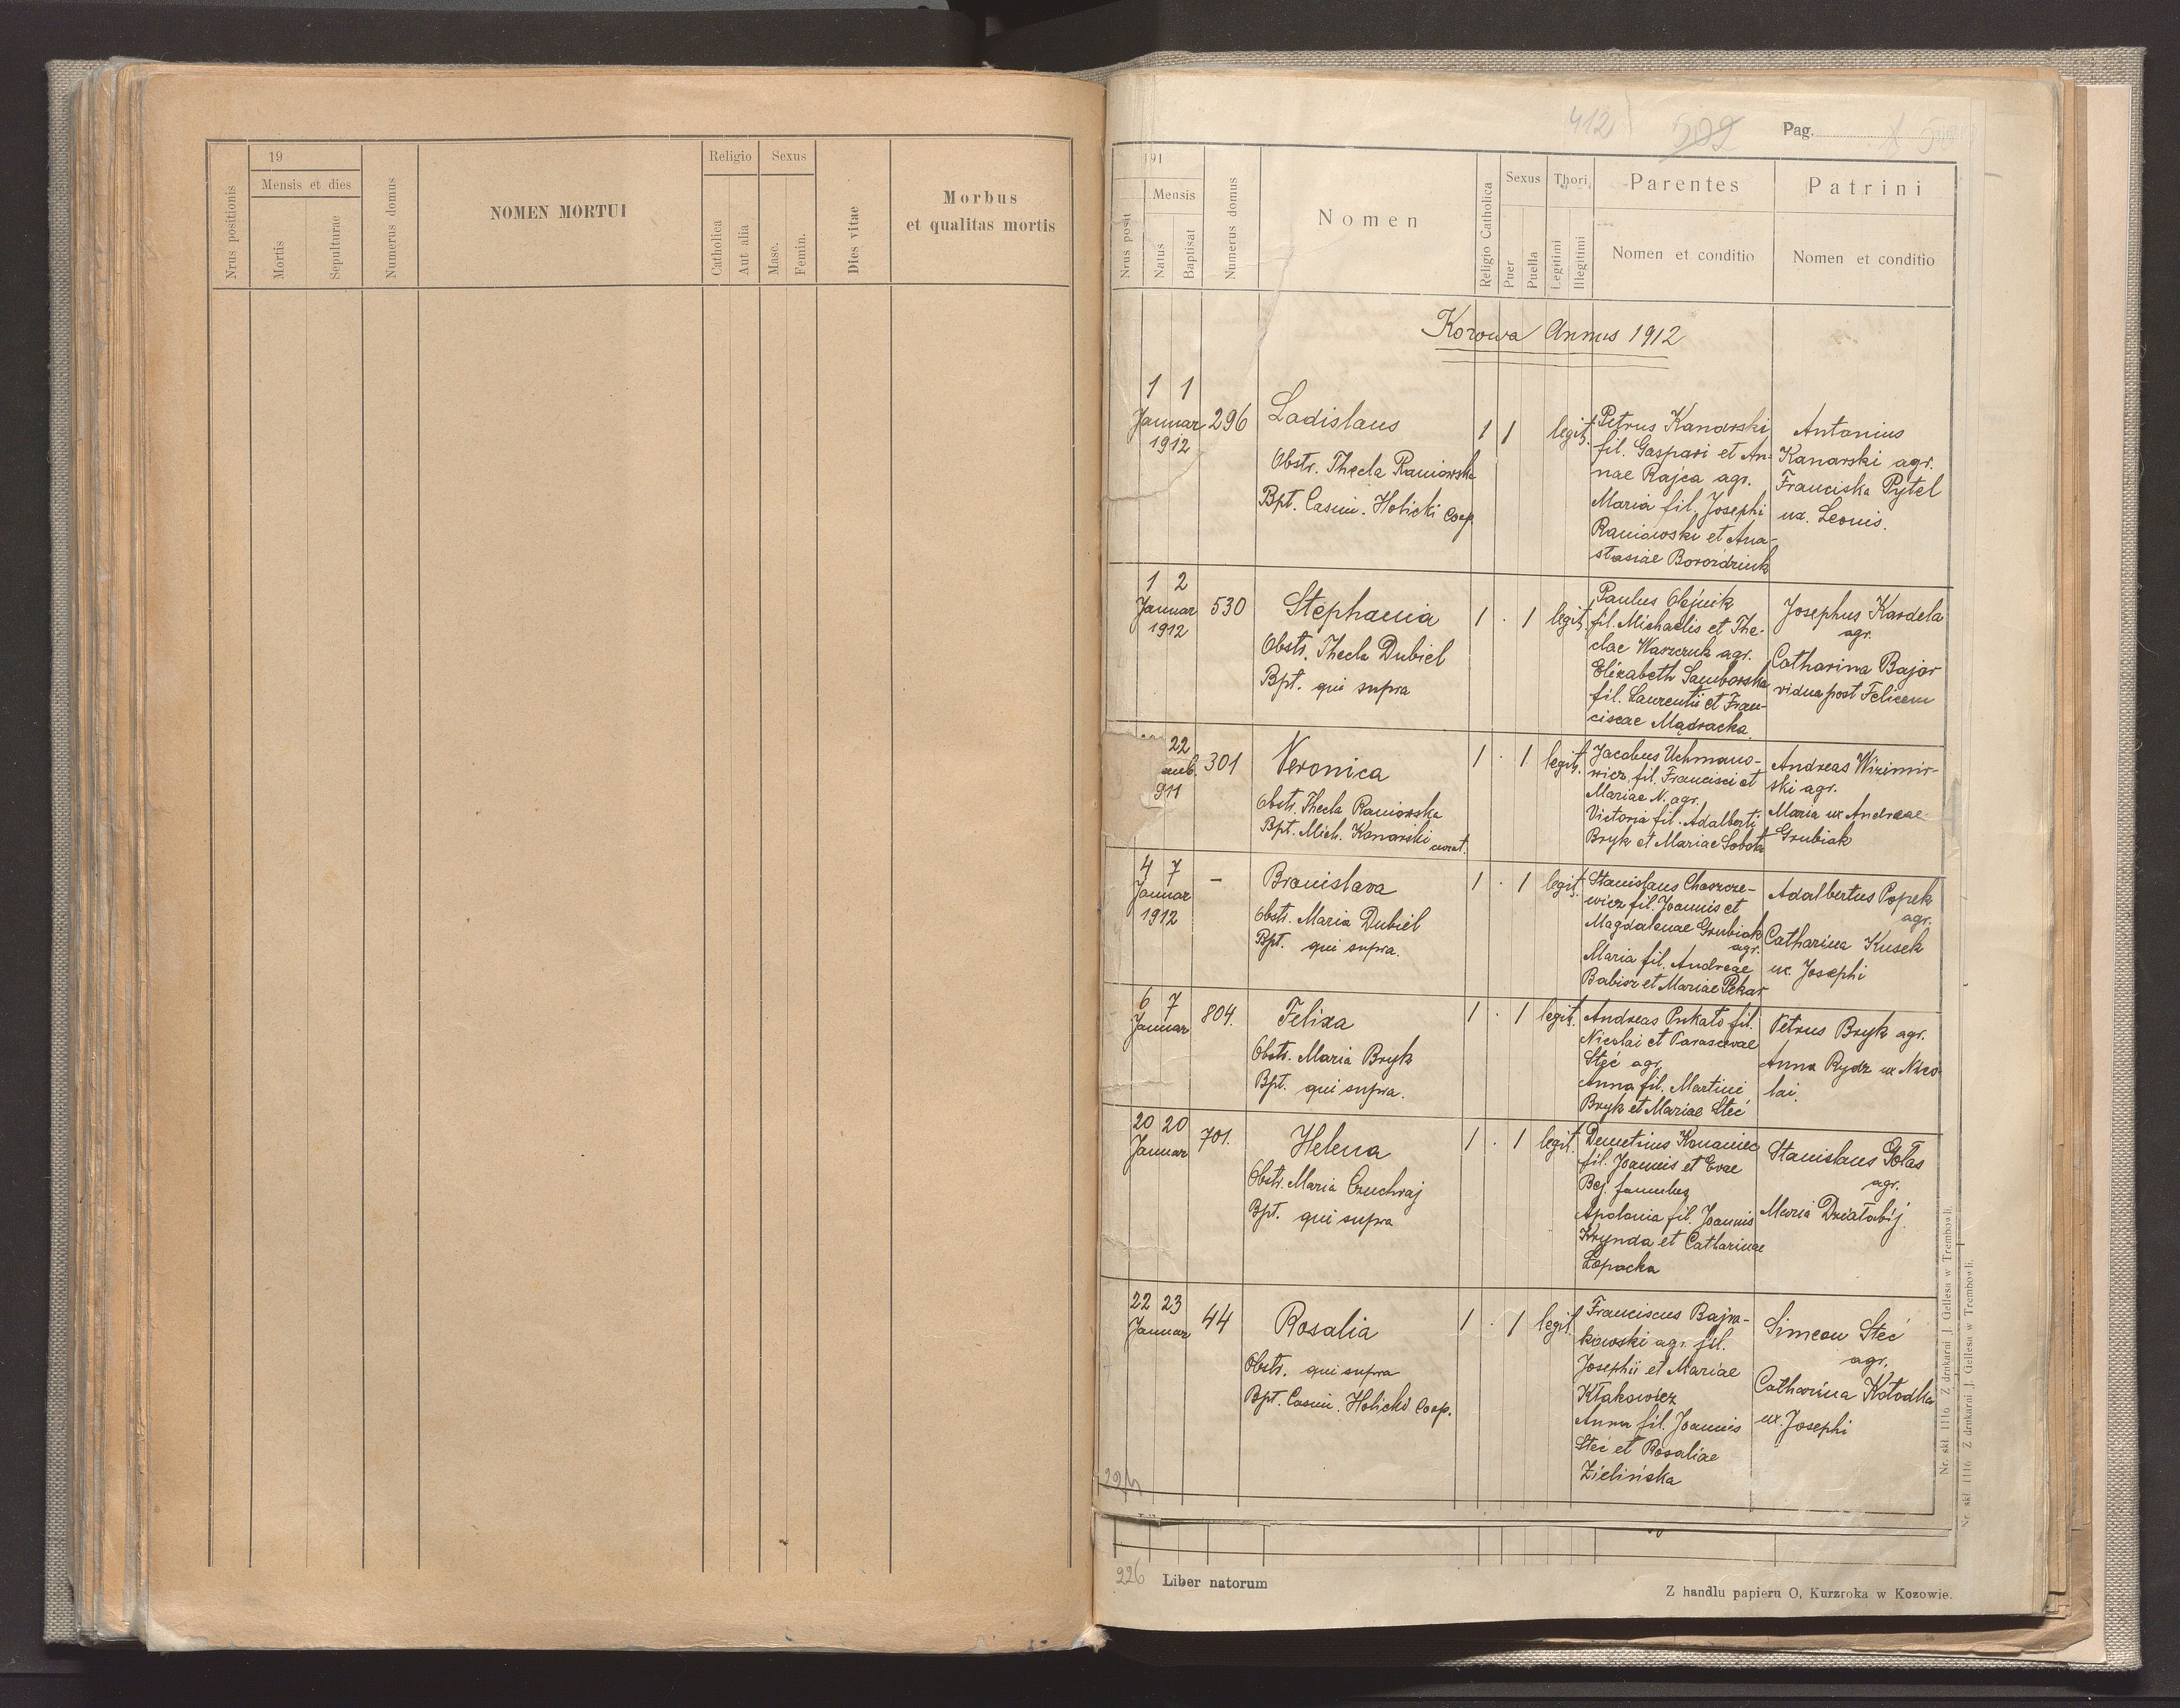 19
Mensis et dies
Nrus positionis
Mortis
Sepulturae
Numerus domus
NOMEN MORTUI
Religio
Catholica
Aut alia
Sexus
Masc.
Femin.
Dies vitae
Morbus
et qualitas mortis
412
509
Pag.
191
Mensis
Nrus posit
Natus
Baptisat
Numerus domus
Nomen
Religio Catholica
Sexus
Puer
Puella
Thori
Legitimi
Illegitimi
Parentes
Nomen et conditio
Patrini
Nomen et conditio
Kozowa Annus 1912
1 1
Januar
1912
296
Ladislaus
Obstr. Thecla Raniowska
Bpt. Casim. Holicki Coop.
1 1 legit.
Petrus Kanarski
fil. Gaspari et An-
nae Rajca agr.
Maria fil. Josephi
Raniowski et Ana-
stasiae
Antonius
Kanarski agr.
Franciska Pytel
ux. Leonis.
1 2
Januar
1912
530
Stephania
Obstr. Thecla Dubiel
Bpt. qui supra
1 . 1 legit.
Paulus Olejnik
fil. Michaelis et The-
clae Waszczuk agr.
Elizabeth Samborska
fil. Laurentii et Fran-
ciscae Mądracka.
Josephus Kardela
agr.
Catharina Bajor
vidua post Felicem
22
911
301
Veronica
Obstr. Thecla Raniowska
Bpt. Mich. Kanarski curat.
1 . 1 legit.
Jacobus Uchmano-
wicz fil. Francisci et
Mariae N. agr.
Victoria fil. Adalberti
Bryk et Mariae Sobota
Andreas Wizimir-
ski agr.
Maria ux Andreae
Grubiak
4 7
Januar
1912
-
Bronislava
Obstr. Maria Dubiel
Bpt. qui supra.
1 . 1 legit.
Stanislaus Chaszcze-
wicz fil. Joannis et
Magdalenae Grubiak
agr.
Maria fil. Andreae
Babisz et Mariae Pekar
Adalbertus Popek
agr.
Catharina Kusek
ux. Josephi
6 7
Januar
804.
Felixa
Obstr. Maria Bryk
Bpt. qui supra.
1 . 1 legit.
Andreas Pukało fil.
Nicolai et Parascevae
Steć agr.
Anna fil. Martini
Bryk et Mariae Steć
Petrus Bryk agr.
Anna Rydz ux Nico-
lai.
20 20
Januar
701.
Helena
Obstr. Maria Czuchraj
Bpt. qui supra
1 . 1 legit.
Demetrius Konaniec
fil. Joannis et Evae
Bej famulus
Apolonia fil. Joannis
Krynda et Catharinae
Łopacka
Stanislaus Gołas
agr.
Maria Działabij
22 23
Januar
44
Rosalia
Obstr. qui supra
Bpt. Casim. Holicki Coop.
1 . 1 legit.
Franciscus Bajra-
kowski agr. fil.
Josephii et Mariae
Kłakowicz
Anna fil. Joannis
Steć et Rosaliae
Zielińska
Simeon Steć
agr.
Catharina Kołodka
ux. Josephi
Nr. skł. 1116 Z drukarni J. Gellesa w Trembowli.
Nr. skł. 1116 Z drukarni J. Gellesa w Trembowli.
226 Liber natorum
Z handlu papieru O, Kurzroka w Kozowie.